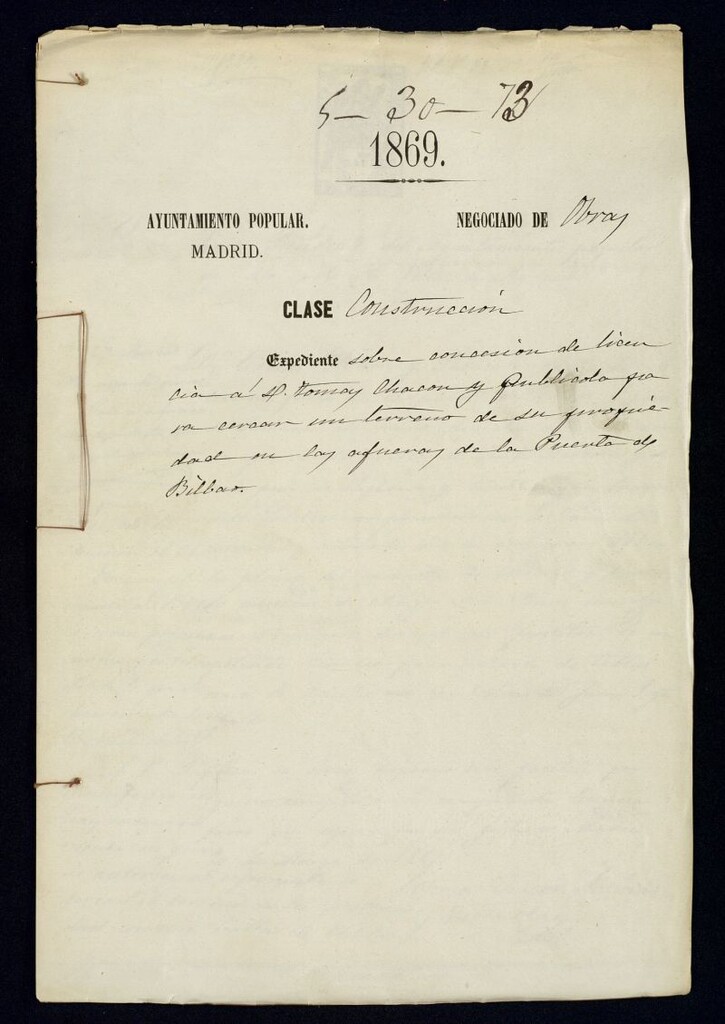 5-30-73
1869.
AYUNTAMIENTO POPULAR.
MADRID.
NEGOCIADO DE Obras
CLASE Construccion
Expediente sobre concesion de licen
cia á D. Tomas Chacon y Publicola pa
ra cercar un terreno de su propie-
dad en las afueras de la Puerta de
Bilbao.